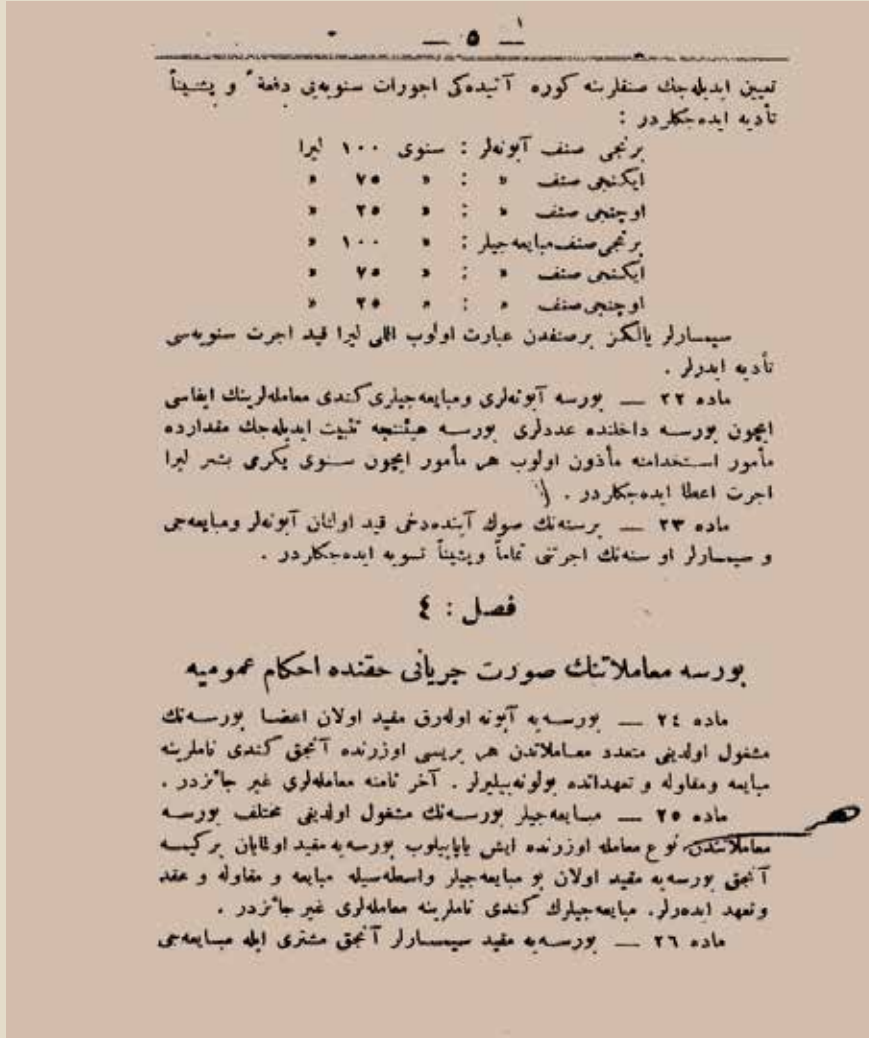 — ٥ —
تعيين ايديله‌جك صنفلرينه كوره آتيده‌كى اجورات سنويه‌يى دفعةً و پشيناً
تأديه ايده‌جكلردر :
برنجى صنف آبونه‌لر : سنوى ١٠٠ ليرا
ايكنجى صنف » : » ٧٥ »
اوچنجى صنف » : » ٢٥ »
برنجى صنف مبايعه‌جيلر : » ١٠٠ »
ايكنجى صنف » : » ٧٥ »
اوچنجى صنف » : » ٢٥ »
سيمسارلر يالكز برصنفدن عبارت اولوب اللى ليرا قيد اجرت سنويه‌سى
تأديه ايدرلر .
ماده ٢٢ — بورسه آبونه‌لرى ومبايعه‌جيلرى كندى معامله‌لرينك ايفاسى
ايچون بورسه داخلنده عددلرى بورسه هيئتنجه تثبيت ايديله‌جك مقدارده
مأمور استخدامنه مأذون اولوب هر مأمور ايچون سنوى يكرمى بشر ليرا
اجرت اعطا ايده‌جكلردر .
ماده ٢٣ — برسنه‌نك صوك آينده‌دخى قيد اولنان آبونه‌لر ومبايعه‌جى
و سيمسارلر او سنه‌نك اجرتنى تماماً وپشيناً تسويه ايده‌جكلردر .
فصل : ٤
بورسه معاملاتنك صورت جريانى حقنده احكام عموميه
ماده ٢٤ — بورسه‌يه آبونه اوله‌رق مقيد اولان اعضا بورسه‌نك
مشغول اولديغى متعدد معاملاتدن هر بريسى اوزرنده آنجق كندى ناملرينه
مبايعه ومقاوله و تعهداتده بولونه‌بيليرلر . آخر نامنه معامله‌لرى غير جائزدر .
ماده ٢٥ — مبايعه‌جيلر بورسه‌نك مشغول اولديغى مختلف بورسه
معاملاتندن نوع معامله اوزرنده ايش ياپابيلوب بورسه‌يه مقيد اولمايان بركيمسه
آنجق بورسه‌يه مقيد اولان بو مبايعه‌جيلر واسطه‌سيله مبايعه و مقاوله و عقد
وتعهد ايده‌رلر. مبايعه‌جيلرك كندى ناملرينه معامله‌لرى غير جائزدر .
ماده ٢٦ — بورسه‌يه مقيد سيمسارلر آنجق مشترى ايله مبايعه‌جى